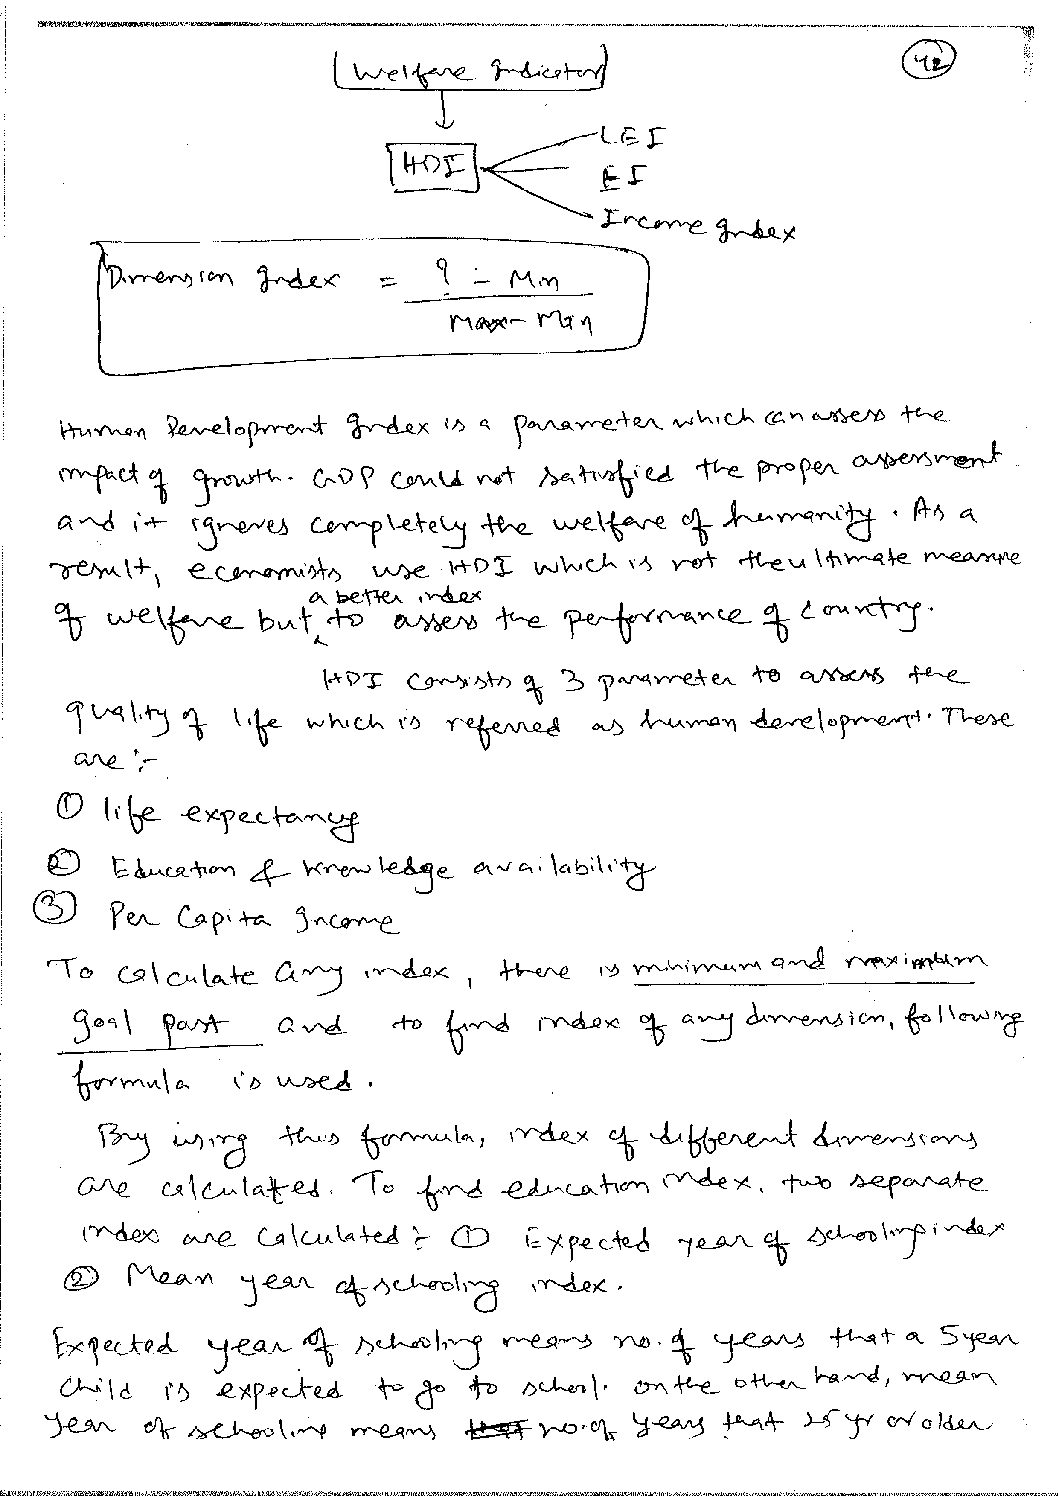 Welfare Indicator
42
HDI
LEI
EI
Income Index
Dimension Index = ? - Min
Max - Min
Human Development Index is a parameter which can assess the
impact of growth. GDP could not satisfied the proper assessment
and it ignores completely the welfare of humanity. As a
result, economists use HDI which is not the ultimate measure
a better index
of welfare but ^ to assess the performance of country.
HDI consists of 3 parameter to assess the
quality of life which is referred as human development. These
are :-
① life expectancy
② Education & knowledge availability
③ Per Capita Income
To calculate any index, there is minimum and maximum
goal part and to find index of any dimension, following
formula is used.
By using this formula, index of different dimensions
are calculated. To find education index, two separate
index are calculated :- ① Expected year of schooling index
② Mean year of schooling index.
Expected year of schooling means no. of years that a 5 year
child is expected to go to school. on the other hand, mean
year of schooling means no. of years that 25 yr or older